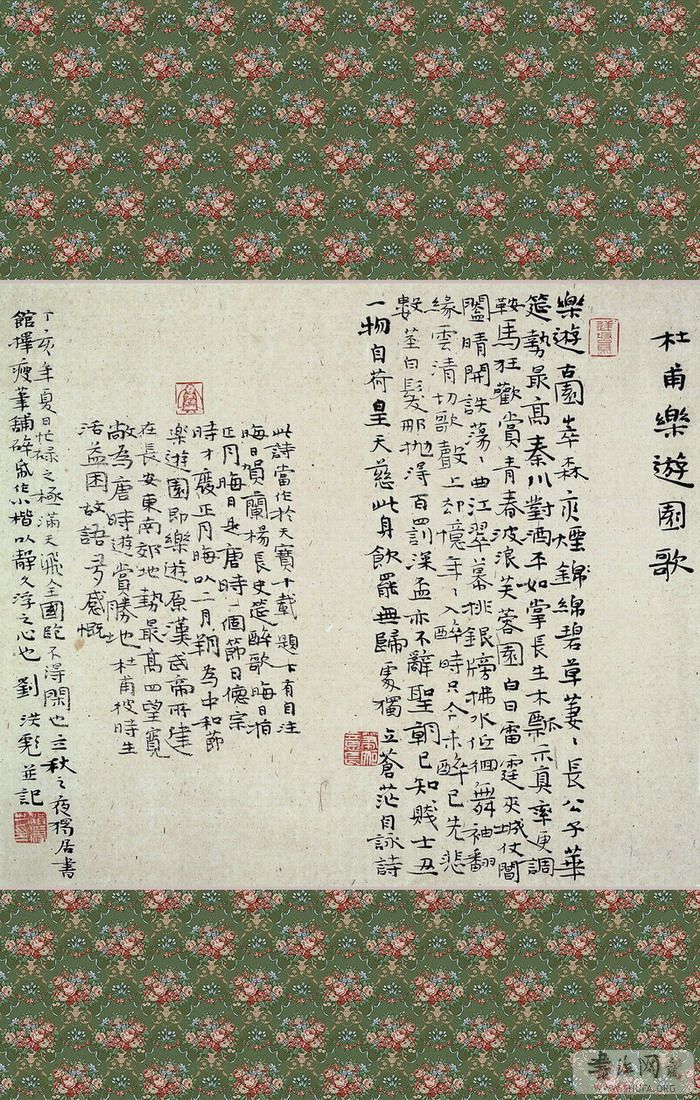 杜甫樂遊園歌
樂遊古園崒森爽煙錦綿碧草萋、長公子華
筵勢最高秦川對酒平如掌長生木瓢示真率更調
鞍馬狂歡賞青春波浪芙蓉園白日雷霆夾城仗閶
闔晴開詄蕩、曲江翠幕排銀牓拂水低徊舞袖翻
緣雲清切歌聲上却憶年、人醉時只今未醉已先悲
數莖白髮那抛得百罰深盃亦不辭聖朝已知賤士丑
一物自荷皇天慈此身飲罷無歸處獨立蒼茫自詠詩
此詩當作於天寶十載題下有自注
晦日賀蘭楊長史筵醉歌晦日指
正月晦日是唐時一個節日德宗
時才廢正月晦以二月朔為中和節
樂遊園即樂遊原漢武帝所建
在長安東南郊地勢最高四望寬
敞為唐時遊賞勝地杜甫彼時生
活益困故語多感慨
丁亥年夏日忙碌之極滿天飛全國跑不得閑也立秋之夜獨居書
館擇瘦筆舖碎紙作小楷以靜久浮之心也劉洪彪並記
书法网
WWW.SHUFA.ORG